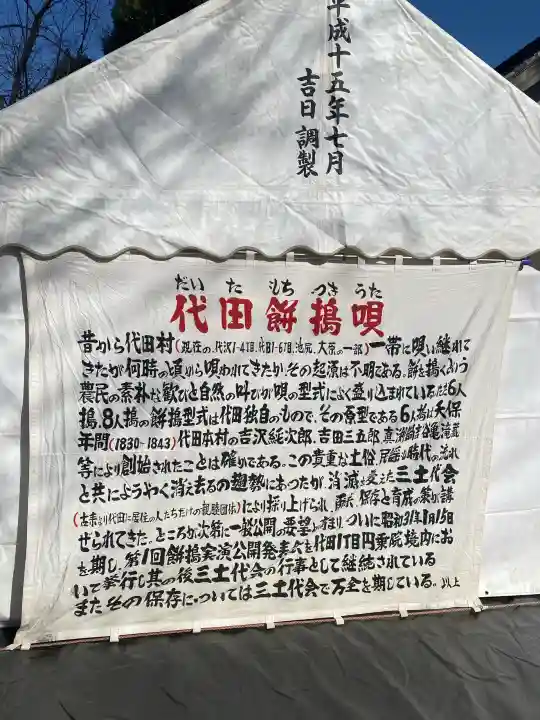 平成十五年七月
吉日 調製
だいた もちつきうた
代田餅搗唄
昔から代田村(現在の、代沢1~4丁目、代田1~6丁目、池尻、大原の一部)一帯に唄い継れて
きたが何時の頃から唄われてきたか、その起源は不明である。餅を搗くという
農民の素朴な歓びと自然の叫びが唄の型式によく盛り込まれている。ただ6人
搗、8人搗の餅搗型式は代田独自のもので、その原型である6人搗は天保
年間(1830-1843)代田本村の吉沢 次郎、吉田三五郎、
等により創始されたことは確かである。この貴重な土俗 も時代の流れ
と共にようやく消え去るの趨勢にあったが 消滅を 三土代会
(古来より代田に居住の人たちだけの親睦団体)により採り上げられ、 保存と育成の策が講
ぜられてきた。ところが次第に一般公開の要望が り、ついに昭和31年1月15日
を期し、第1回餅搗実演公開発表会を代田1丁目円乗院境内にお
いて挙行し其の後三土代会の行事として継続されている
またその保存については三土代会で万全を期している。以上